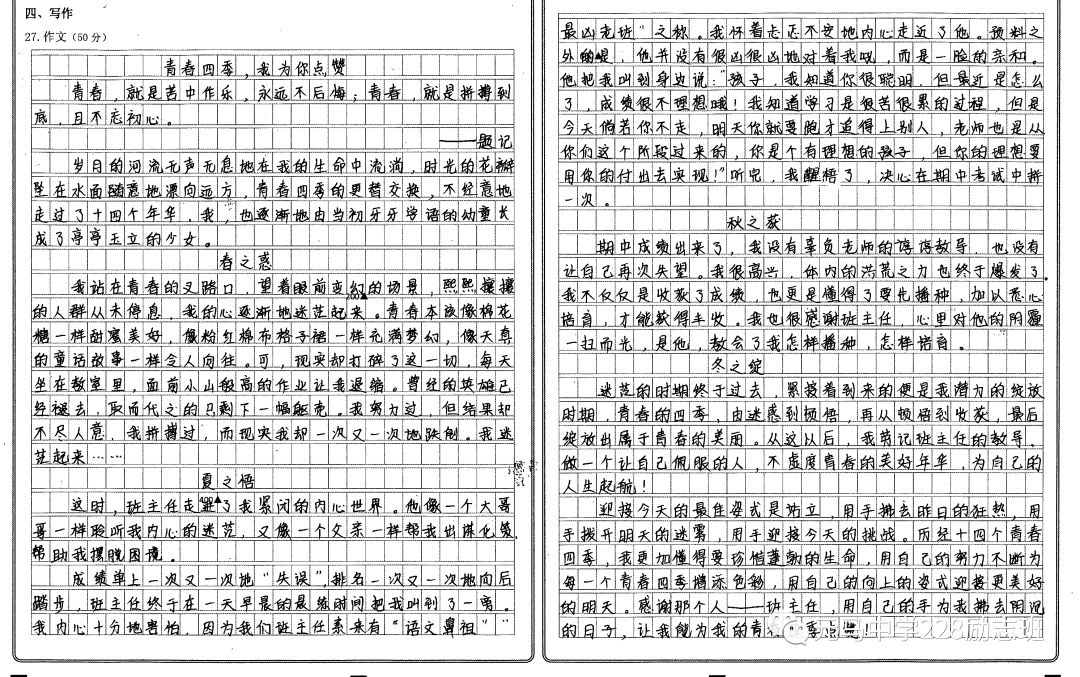 四、写作
27.作文(50分)
青春四季，我为你点赞
青春，就是苦中作乐，永远不后悔；青春，就是拼搏到
底，且不忘初心。
——题记
岁月的河流无声无息地在我的生命中流淌，时光的花瓣
坠在水面随意地漂向远方，青春四季的更替交换，不经意地
走过了十四个年华，我，也逐渐地由当初牙牙学语的幼童长
成了亭亭玉立的少女。
春之惑
我站在青春的叉路口，望着眼前变幻的场景，熙熙攘攘
200▲
的人群从未停息，我的心逐渐地迷茫起来。青春本该像棉花
糖一样甜蜜美好，像粉红棉布格子裙一样充满梦幻，像天真
的童话故事一样令人向往。可，现实却打碎了这一切，每天
坐在教室里，面前小山般高的作业让我退缩。曾经的英雄已
经褪去，取而代之的只剩下一幅躯壳。我努力过，但结果却
不尽人意，我拼搏过，而现实我却一次又一次地跌倒。我迷
茫起来……
夏之悟
这时，班主任走进了我紧闭的内心世界。他像一个大哥
400▲
哥一样聆听我内心的迷茫，又像一个父亲一样帮我出谋化策
帮助我摆脱困境。
成绩单上一次又一次地“失误”，排名一次又一次地向后
踏步，班主任终于在一天早晨的最终时间把我叫到了一旁。
我内心十分地害怕，因为我们班主任素来有“语文鼻祖”“
最凶老班”之称。我怀着忐忑不安地内心走近了他。预料之
外的是，他并没有很凶很凶地对着我吼，而是一脸的亲和。
他把我叫到身边说：“孩子，我知道你很聪明，但最近是怎么
了，成绩很不理想哦！我知道学习是很苦很累的过程，但是
今天倘若你不走，明天你就要跑才追得上别人，老师也是从
你们这个阶段过来的，你是个有理想的孩子，但你的理想要
用你的付出去实现！”听完，我醒悟了，决心在期中考试中拼
一次。
秋之获
期中成绩出来了，我没有辜负老师的谆谆教导，也没有
让自己再次失望。我很高兴，体内的洪荒之力也终于爆发了。
我不仅仅是收获了成绩，也更是懂得了要先播种，加以悉心
培育，才能获得丰收。我也很感谢班主任，心里对他的阴霾
一扫而光，是他，教会了我怎样播种，怎样培育。
冬之绽
迷茫的时期终于过去，紧接着到来的便是我潜力的绽放
时期，青春的四季，由迷惑到顿悟，再从顿悟到收获，最后
绽放出属于青春的美丽。从这以后，我劳记班主任的教导，
做一个让自己佩服的人，不虚度青春的美好年华，为自己的
人生起航！
迎接今天的最佳姿式是站立，用手拂去昨日的狂热，用
手拨开明天的迷雾，用手迎接今天的挑战。历经十四个青春
四季，我更加懂得要珍惜蓬勃的生命，用自己的努力不断为
每一个青春四季增添色彩，用自己的向上的姿式迎接更美好
的明天。感谢那个人——班主任，用自己的手为我拂去阴沉
的日子，让我能为我的青春四季点赞！
中学228励志班